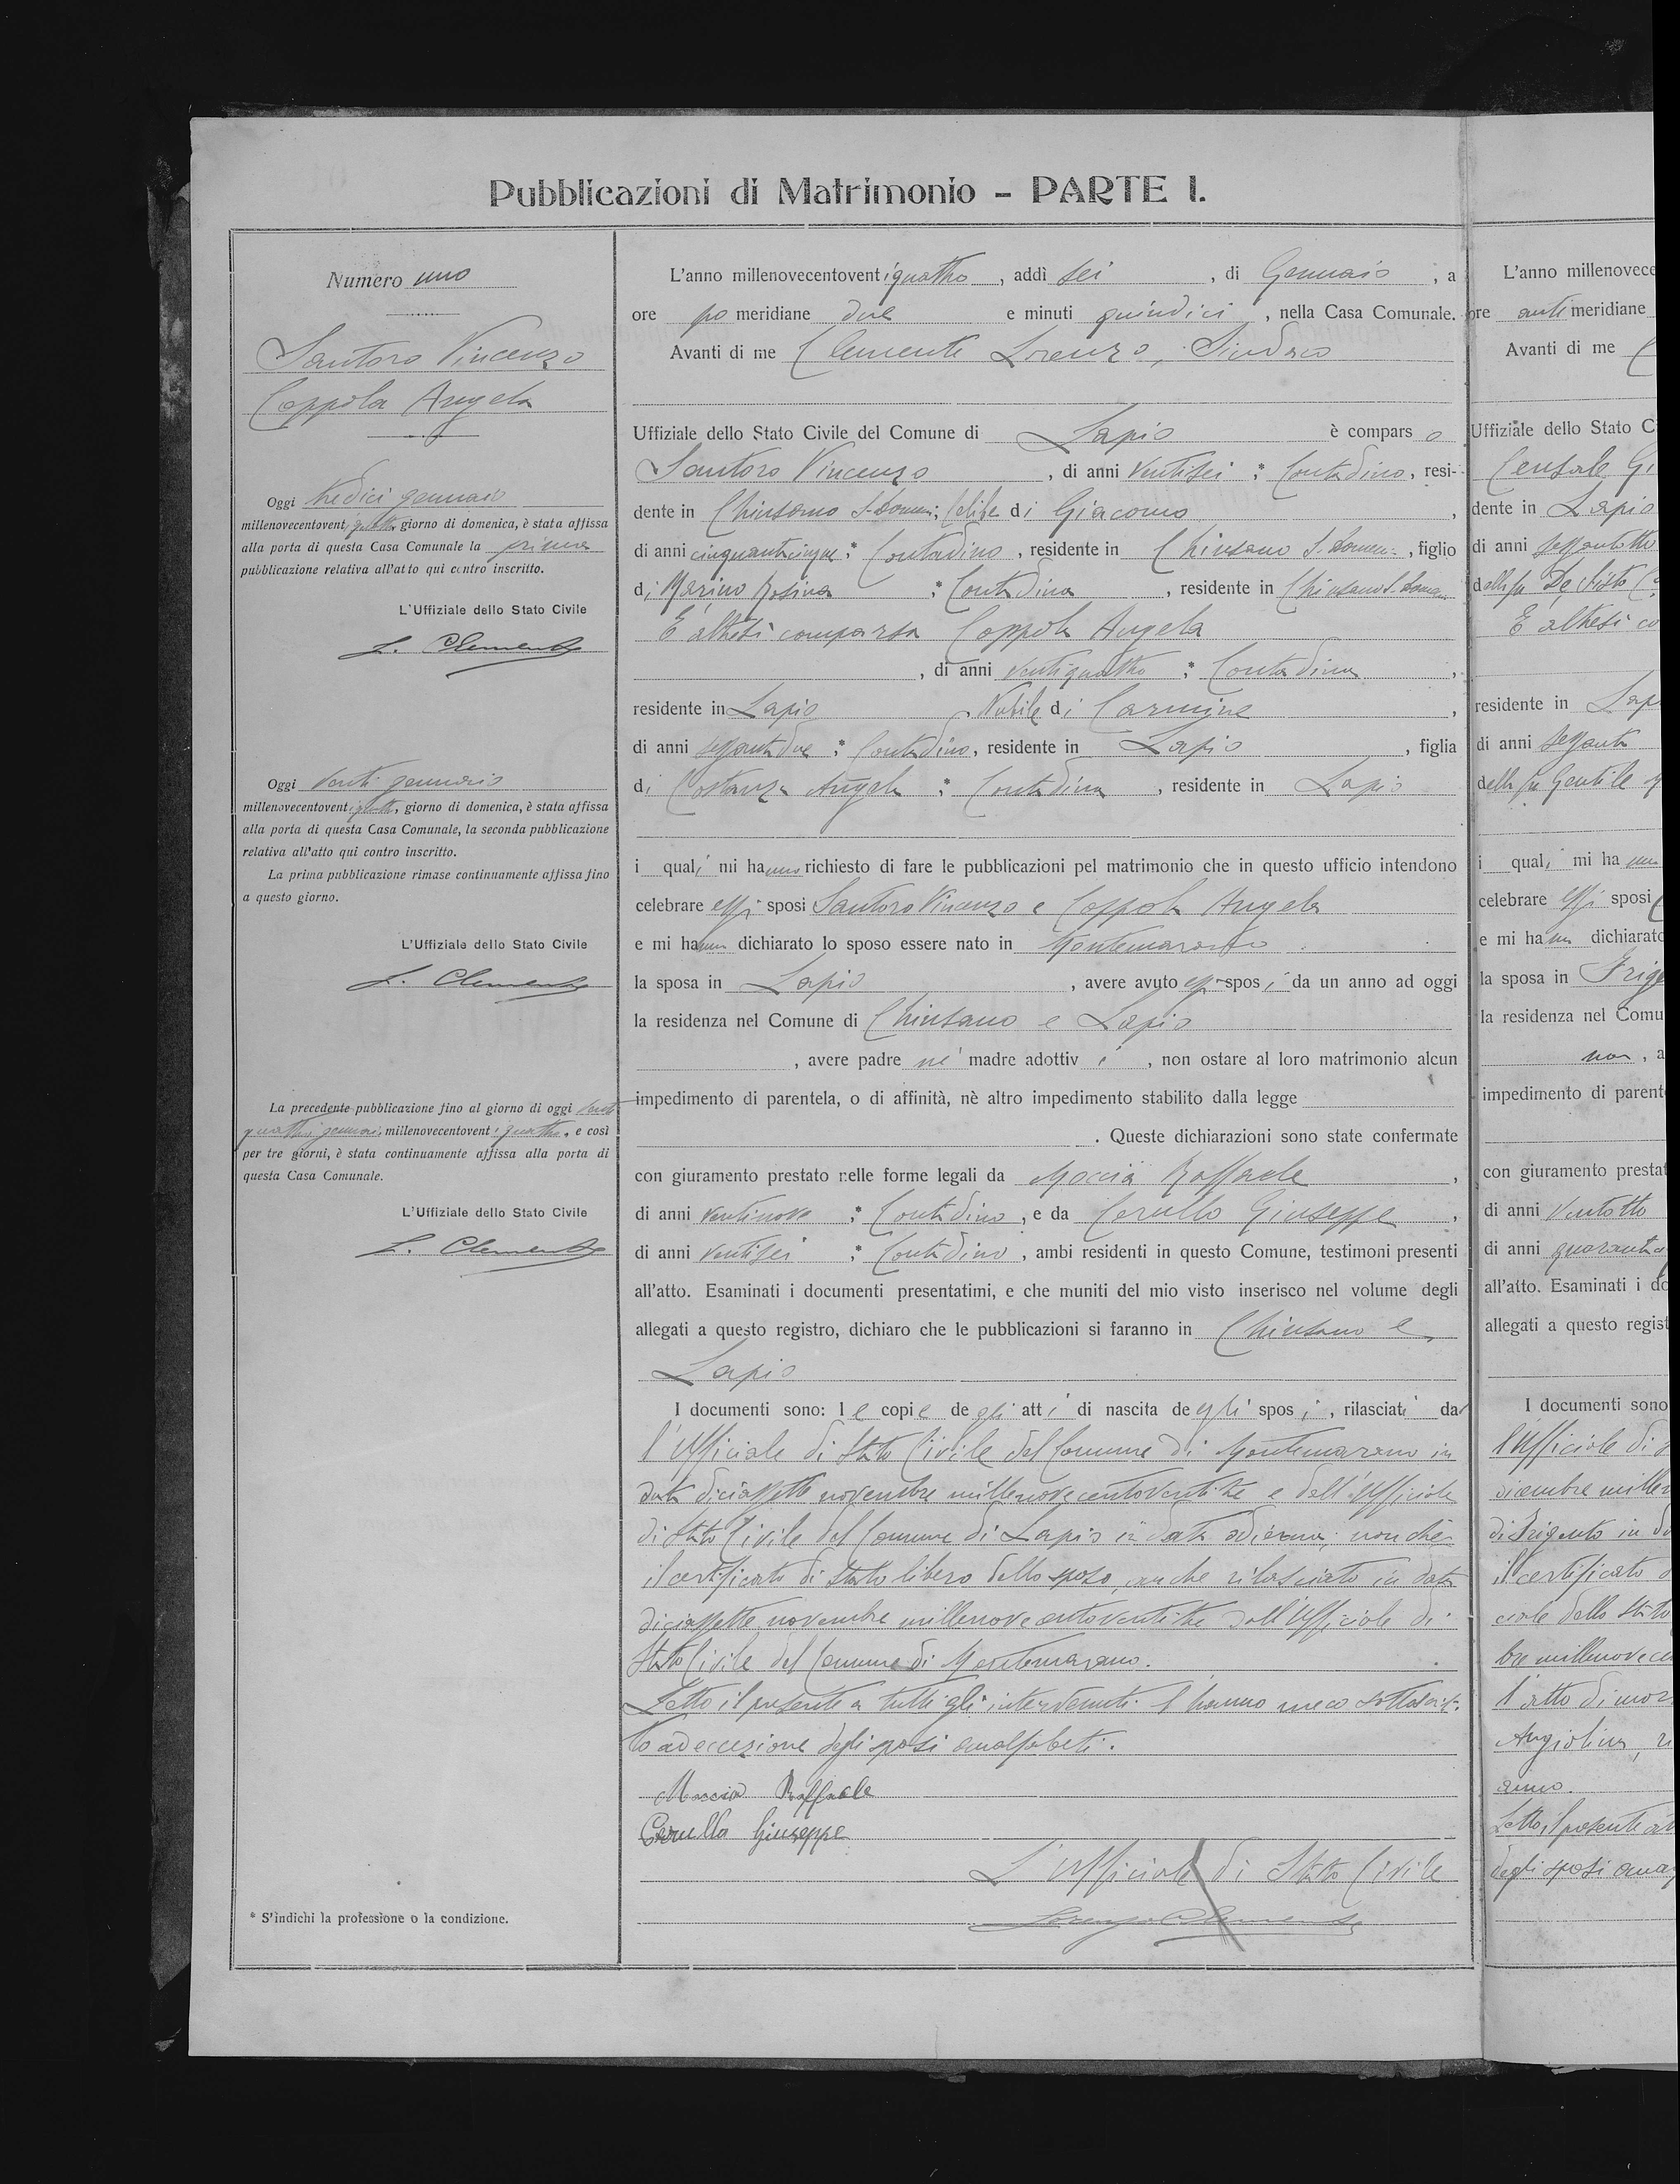 Pubblicazioni di Matrimonio - PARTE I.
Numero uno
Santoro Vincenzo
Coppola Angela
Oggi tredici gennaio
millenovecentoventiquattro, giorno di domenica, è stata affissa
alla porta di questa Casa Comunale la prima
pubblicazione relativa all'atto qui contro inscritto.
L'Uffiziale dello Stato Civile
L. Clemente
Oggi venti gennaio
millenovecentoventiquattro, giorno di domenica, è stata affissa
alla porta di questa Casa Comunale, la seconda pubblicazione
relativa all'atto qui contro inscritto.
La prima pubblicazione rimase continuamente affissa fino
a questo giorno.
L'Uffiziale dello Stato Civile
L. Clemente
La precedente pubblicazione fino al giorno di oggi venti
quattro gennaio, millenovecentoventiquattro, e così
per tre giorni, è stata continuamente affissa alla porta di
questa Casa Comunale.
L'Uffiziale dello Stato Civile
L. Clemente
* S'indichi la professione o la condizione.
L'anno millenovecentoventiquattro, addì sei, di Gennaio, a
ore pomeridiane due e minuti quindici, nella Casa Comunale.
Avanti di me Clemente Lorenzo, Sindaco
Uffiziale dello Stato Civile del Comune di Lapio è comparso
Santoro Vincenzo, di anni ventisei * Contadino, resi-
dente in Chiusano S. Domen: Celibe di Giacomo,
di anni cinquantacinque * Contadino, residente in Chiusano S. Domen:, figlio
di Marino Rosina * Contadina, residente in Chiusano S. Domen
E altresì comparsa Coppola Angela
, di anni ventiquattro * Contadina,
residente in Lapio, Nubile di Carmine,
di anni sessantadue * Contadino, residente in Lapio, figlia
di Costanza Angela * Contadina, residente in Lapio
i quali mi hanno richiesto di fare le pubblicazioni pel matrimonio che in questo ufficio intendono
celebrare essi sposi Santoro Vincenzo e Coppola Angela
e mi hanno dichiarato lo sposo essere nato in Montemarano
la sposa in Lapio, avere avuto essi sposi da un anno ad oggi
la residenza nel Comune di Chiusano e Lapio
, avere padre nè madre adottivi, non ostare al loro matrimonio alcun
impedimento di parentela, o di affinità, nè altro impedimento stabilito dalla legge
. Queste dichiarazioni sono state confermate
con giuramento prestato nelle forme legali da Moccia Raffaele,
di anni ventinove * Contadino, e da Cerullo Giuseppe,
di anni ventisei * Contadino, ambi residenti in questo Comune, testimoni presenti
all'atto. Esaminati i documenti presentatimi, e che muniti del mio visto inserisco nel volume degli
allegati a questo registro, dichiaro che le pubblicazioni si faranno in Chiusano e
Lapio
I documenti sono: le copie degli atti di nascita degli sposi, rilasciati dal
l'Ufficiale di Stato Civile del Comune di Montemarano in
data diciassette novembre millenovecentoventitre e dall'Ufficiale
di Stato Civile del Comune di Lapio in data odierna; nonchè
il certificato di Stato libero dello sposo, anche rilasciato in data
diciassette novembre millenovecentoventitre dall'Ufficiale di
Stato Civile del Comune di Montemarano.
Letto il presente a tutti gli intervenuti l'hanno meco sottoscrit-
to ad eccezione degli sposi analfabeti.
Moccia Raffaele
Cerullo Giuseppe
L'Ufficiale di Stato Civile
Lorenzo Clemente
L'anno millenovece
ore antimeridiane
Avanti di me C
Uffiziale dello Stato C
Censale Gi
dente in Lapio
di anni sessantotto
della fu De Sisto
E altresì co
residente in Lap
di anni sessanta
della fu Gentile
i quali mi hanno
celebrare essi sposi
e mi hanno dichiarato
la sposa in Frige
la residenza nel Comu
non, a
impedimento di parent
con giuramento prestat
di anni ventotto
di anni quaranta
all'atto. Esaminati i do
allegati a questo regist
I documenti sono
l'Ufficiale di S
dicembre millen
di Frigento in da
il certificato d
ciale dello Stato
bre millenovece
l'atto di mor
Angiolina, ri
anno.
Letto il presente a
degli sposi ana